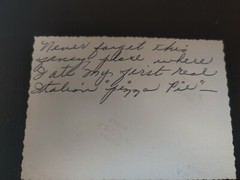 Never forget this
jersey place where
I ate my first real
Italian "Pizza Pie" —